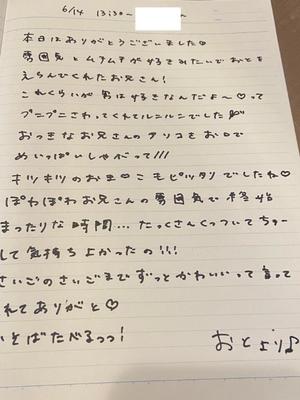 6/14 13:30~
本日はありがとうございました♡
雰囲気とムチムチが好きみたいでおとを
えらんでくれたお兄さん!
これくらいが男は好きなんだよ〜♡って
プニプニさわってくれてルンルンでした
おっきなお兄さんのアソコをお口で
めいっぱいしゃぶって!!!
キツキツのおま○こもピッタリでしたね♡
ぽわぽわお兄さんの雰囲気で終始
まったりな時間…たっくさんくっついてちゅー
して気持ちよかったの!!!
さいごのさいごまでずっとかわいいって言って
れてありがと♡
いそばたべるっっ!
おとより♪